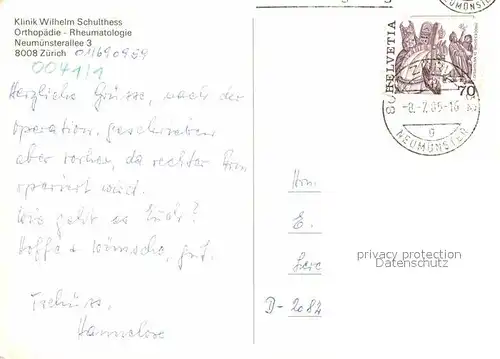 Klinik Wilhelm Schulthess
Orthopädie - Rheumatologie
Neumünsterallee 3
8008 Zürich 01/690959
0041/1
Herzliche Grüsse, nach der
Operation, geschrieben
aber vorher, da rechter Arm
operiert wird.
Wie geht es Euch?
Hoffe + wünsche, gut.
Tschüss,
Hannelore
HELVETIA
70
-8.-7.85-16
9
NEUMÜNSTER
Hrn.
E.
D-2082
privacy protection
Datenschutz